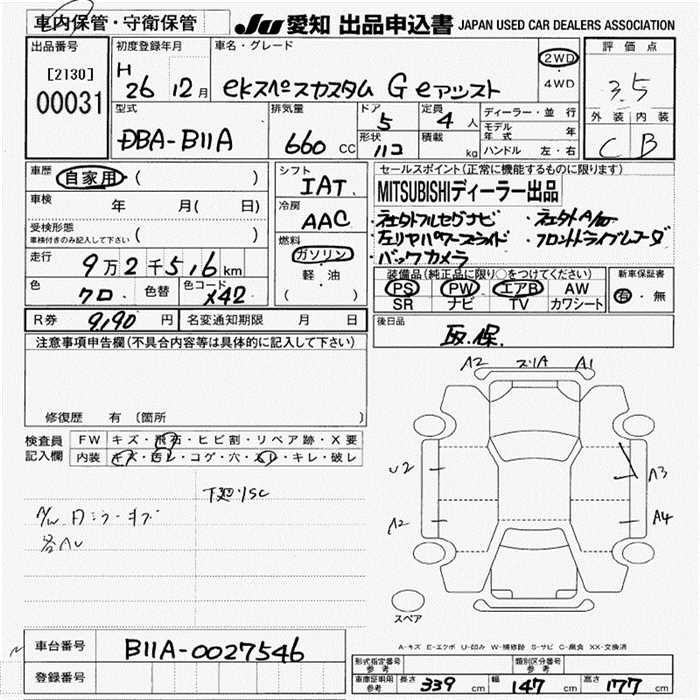 車内保管・守衛保管
JU 愛知 出品申込書 JAPAN USED CAR DEALERS ASSOCIATION
出品番号
[2130]
00031
初度登録年月
H
26 12月
車名・グレード
eKスペースカスタム G eアシスト
2WD
4WD
評価点
3.5
外装 内装
C B
型式
DBA-B11A
排気量
660 CC
ドア
5
形状
定員
4 人
積載
kg
ディーラー・並行
モデル年式 年
ハンドル 左・右
車歴
自家用 ( )
車検
年 月( 日)
受検形態
車検付きのみ記入して下さい ( )
走行
9万2千516km
色
クロ
色替
色コード
X42
シフト
IAT
冷房
AAC
燃料
ガソリン
軽・油
( )
セールスポイント(正常に機能するものに限ります)
MITSUBISHIディーラー出品
・社外フルセグナビ ・社外A/W
・左リヤパワースライド ・フロントドライブレコーダ
・バックカメラ
装備品(純正品に限り○をつけてください)
PS PW エアB AW
SR ナビ TV カワシート
新車保証書
有・無
R券 9,190 円
名変通知期限 月 日
後日品
取.保.
注意事項申告欄(不具合内容等は具体的に記入して下さい)
修復歴 有 (箇所 )
検査員
記入欄
FW キズ・飛石・ヒビ割・リペア跡・X要
内装 キズ・汚レ・コゲ・穴・スレ・キレ・破レ
下廻りSC
A/W
A2 A1
U2
A3
A2
A4
スペア
A-キズ E-エクボ U-凹み W-補修跡 S-サビ C-腐食 XX-交換済
車台番号
B11A-0027546
登録番号
形式指定番号
参考
類別区分番号
参考
車庫証明用
参考
長さ 339 cm
幅 147 cm
高さ 177 cm